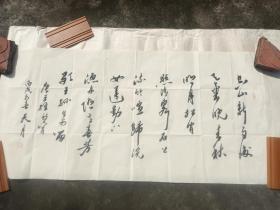 空山新雨後
天氣晚来秋
明月松间
照清泉石上
流竹喧歸浣
女蓮動下
渔舟随意春芳
歇王孙自可留
唐王维